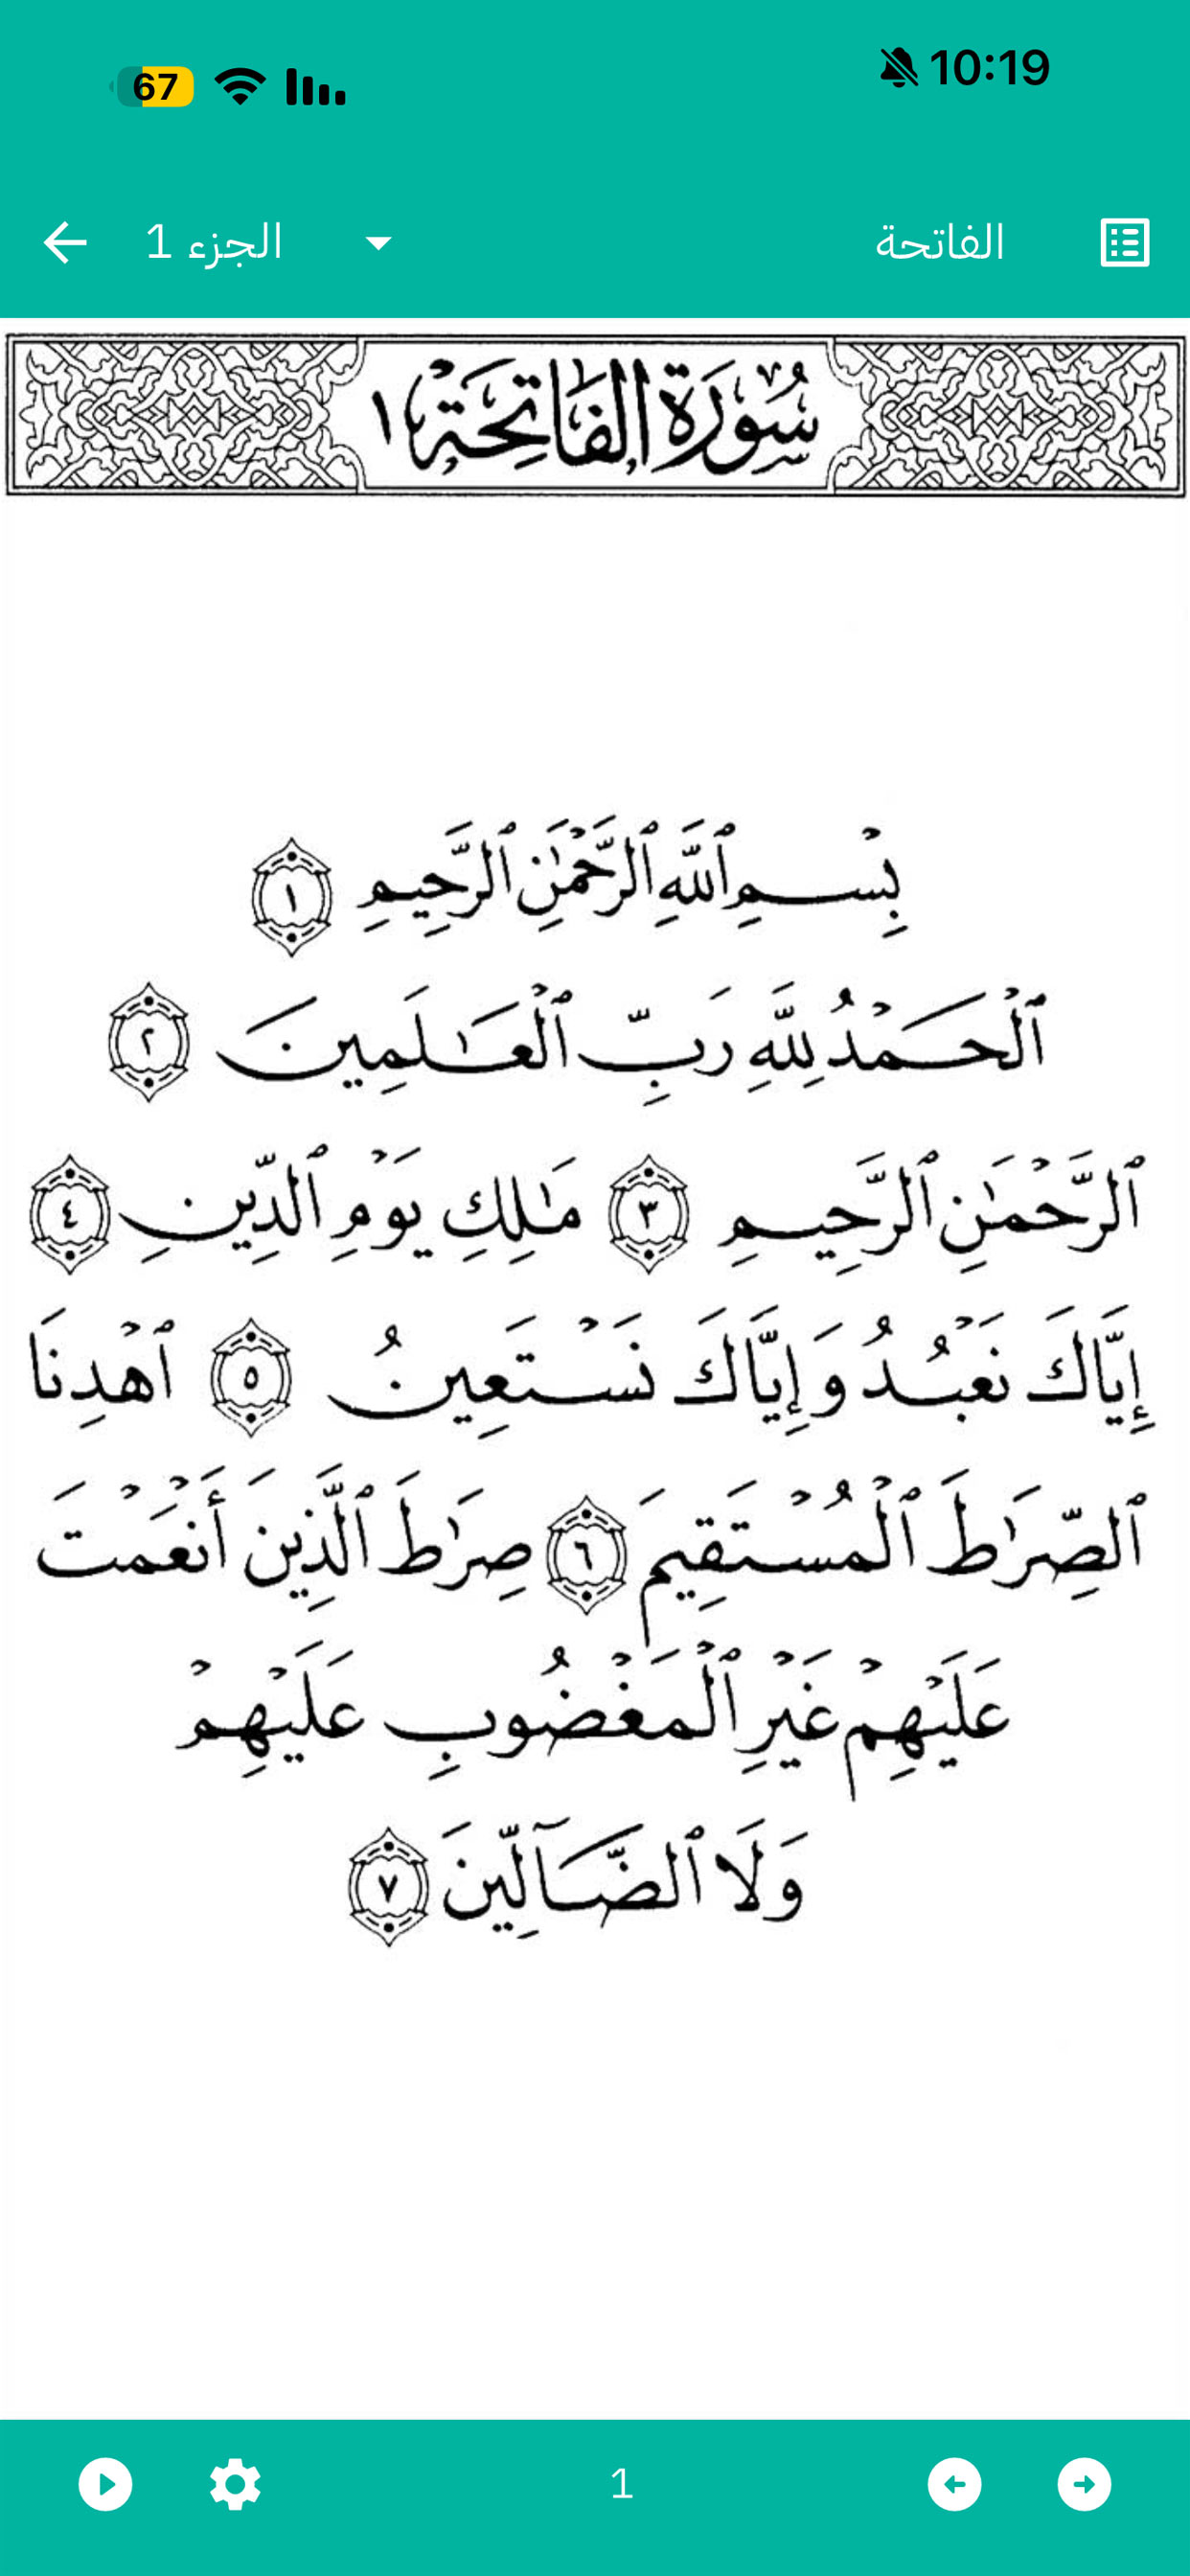 67 10:19
الفاتحة الجزء 1
سُورَةُ الفَاتِحَةِ ١
بِسْمِ ٱللَّهِ ٱلرَّحْمَٰنِ ٱلرَّحِيمِ ١
ٱلْحَمْدُ لِلَّهِ رَبِّ ٱلْعَٰلَمِينَ ٢
ٱلرَّحْمَٰنِ ٱلرَّحِيمِ ٣ مَٰلِكِ يَوْمِ ٱلدِّينِ ٤
إِيَّاكَ نَعْبُدُ وَإِيَّاكَ نَسْتَعِينُ ٥ ٱهْدِنَا
ٱلصِّرَٰطَ ٱلْمُسْتَقِيمَ ٦ صِرَٰطَ ٱلَّذِينَ أَنْعَمْتَ
عَلَيْهِمْ غَيْرِ ٱلْمَغْضُوبِ عَلَيْهِمْ
وَلَا ٱلضَّآلِّينَ ٧
1